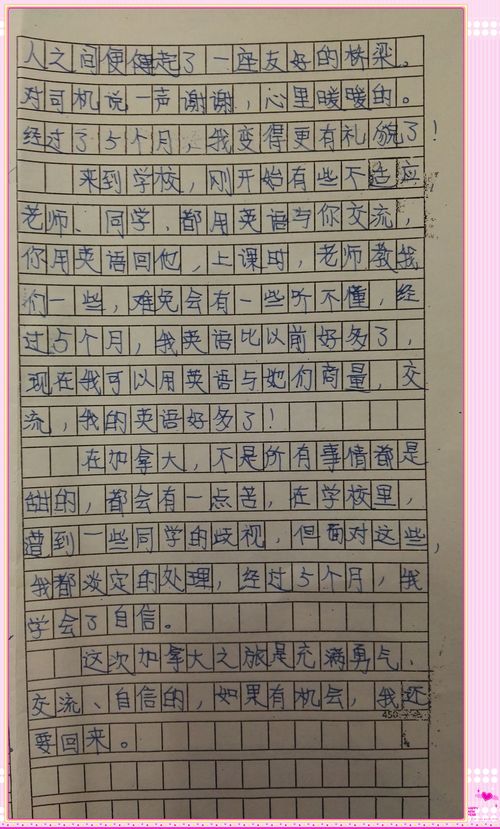 人之间便建起了一座友好的桥梁。
对司机说一声谢谢，心里暖暖的。
经过了5个月，我变得更有礼貌了！
来到学校，刚开始有些不适应
老师、同学，都用英语与你交流，
你用英语回他，上课时，老师教我
们一些，难免会有一些听不懂，经
过5个月，我英语比以前好多了，
现在我可以用英语与她们商量，交
流，我的英语好多了！
在加拿大，不是所有事情都是
甜的，都会有一点苦，在学校里，
遭到一些同学的歧视，但面对这些，
我都淡定的处理，经过5个月，我
学会了自信。
这次加拿大之旅是充满勇气、
交流、自信的，如果有机会，我还
450
要回来。